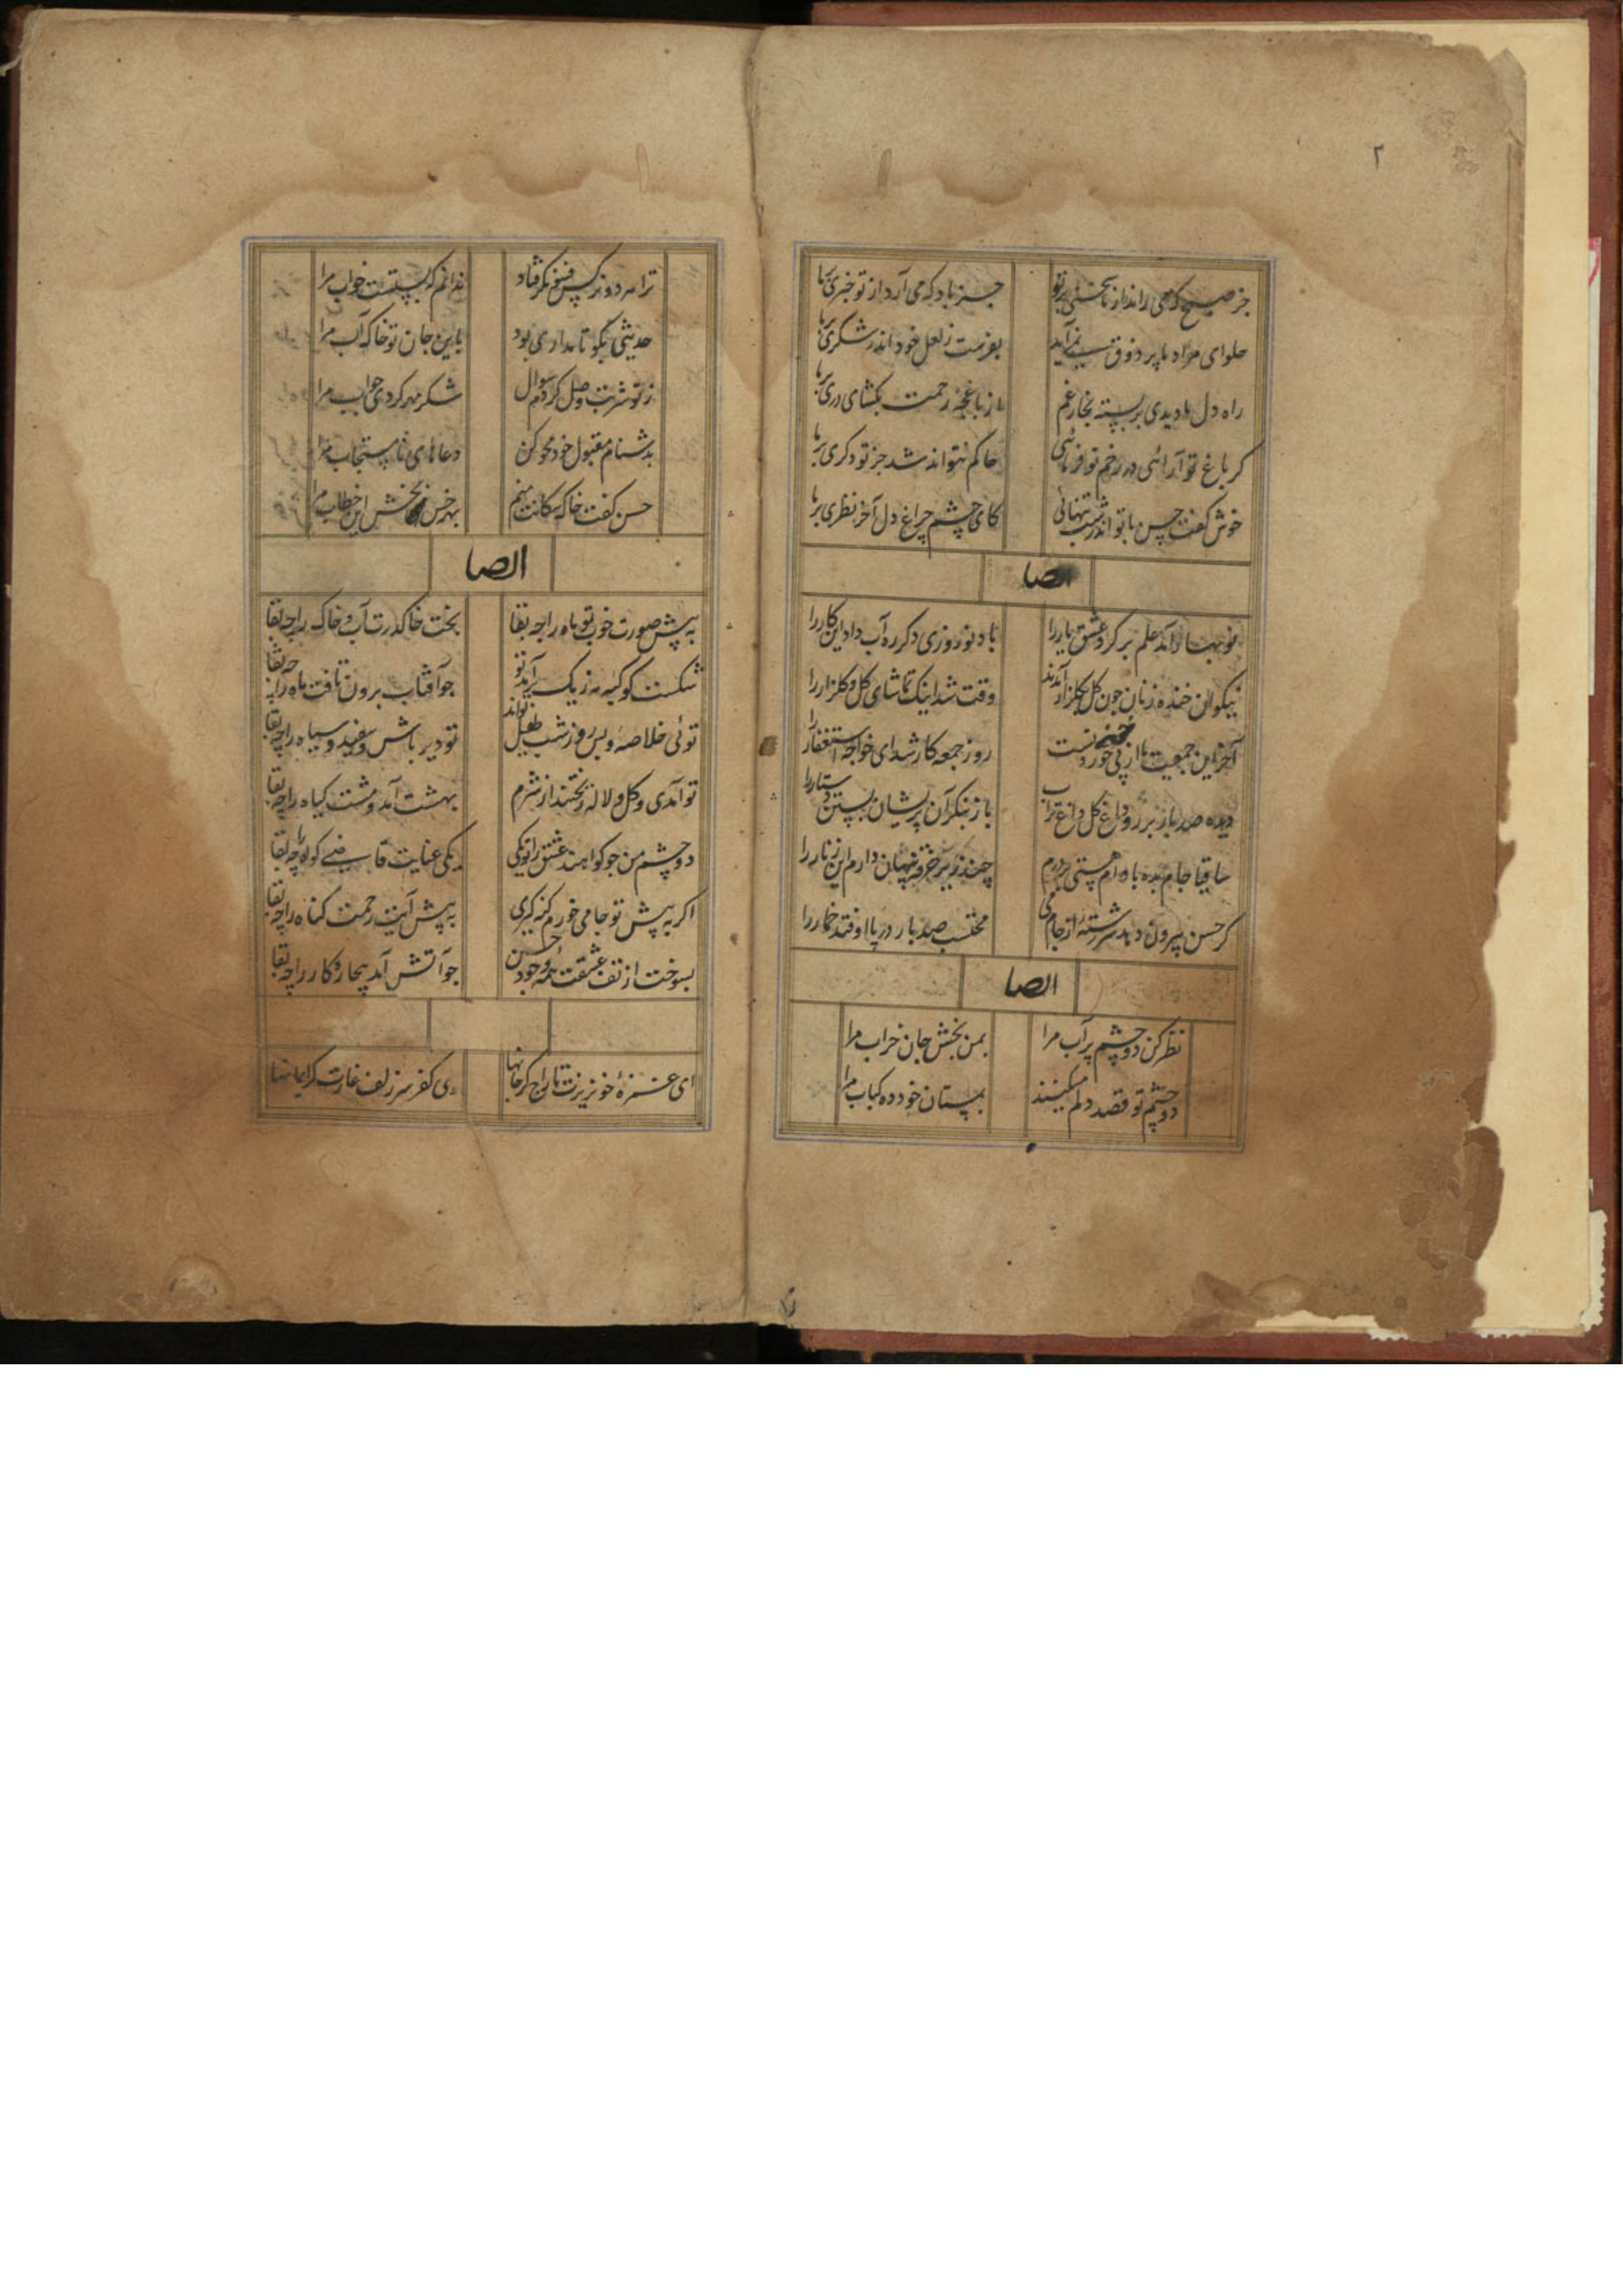 ۲
جز صبح که می راند از ما سخنی بر تو جز باد که می آرد از تو خبری بر ما
حلوای مراد ما پر ذوق نمی آید بفرست ز لعل خود اندر شکری بر ما
راه دل ما دیدی بر بسته بخار غم باز از غنچه رحمت بکشای دری بر ما
کر باغ تو آرائی ور زخم تو فرمائی حاکم نتواند شد جز تو دکری بر ما
خوش کفت حسن با تو اندر شب تنهائی کای چشم چراغ دل آخر نظری بر ما
ایضا
نوبهار آمد علم بر کرد عشق یار را باد نوروزی دکر ره آب داد این کار را
نیکوان خنده زنان چون کل بکلزار آمدند وقت شد اینک تماشای کل و کلزار را
آخر این جمعیت ما از پی خوردنست روز جمعه کار شد ای خواجه استغفار را
دیده صد باز بر رو داغ کل داغ ترا باز بنکر آن پریشان بستن دستار را
ساقیا جام بده باده ام هستی چند زیر خرقه پنهان دارم این زنار را
کر حسن بیرون دهد سررشته از جام می محتسب صد بار در پا اوفتد خمار را
ایضا
نظر کن دو چشم پر آب مرا بمن بخش جان خراب مرا
دو چشم تو قصد دلم میکنند بمستان خود ده کباب مرا
ترا هر دو نرکس فسخ مکر فتاد ندانم که بستست خواب مرا
حدیثی بکو تا مداری بود باین جان تو خاک آب مرا
ز تو شربت وصل کردم سوال شکر مهر کردی جواب مرا
بدشنام مقبول خود محو کن دعاهای نامستجاب مرا
حسن کفت خاک سکانت منم بهر خس بخش این خطاب مرا
ایضا
به پیش صورت خوب تو ماه را چه بقا بخت خاک درت آب و خاک را چه بقا
شکست کوکبه مه ز یک برآمد تو چو آفتاب برون تافت ماه را چه بقا
توئی خلاصه و بس روز شب طفیل تواند تو دیر باش سفید و سیاه را چه بقا
تو آمدی و کل و لاله ریختند از شرم بهشت آمد و مشت کیاه را چه بقا
دو چشم من چو کواهند عشق را تو یکی یکی عنایت قاضی کواه را چه بقا
اکر به پیش تو جامی خورم کنه کیری به پیش آیت رحمت کناه را چه بقا
بسوخت از تف عشقت همه وجود حسن چو آتش آمد بیچاره کار را چه بقا
ای غمزهٔ خونریزت تاراج کر جانها وی کفر سر زلفت غارت کر ایمانها